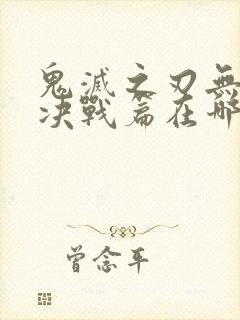 鬼滅之刃無
决戰篇在哪
曾念平